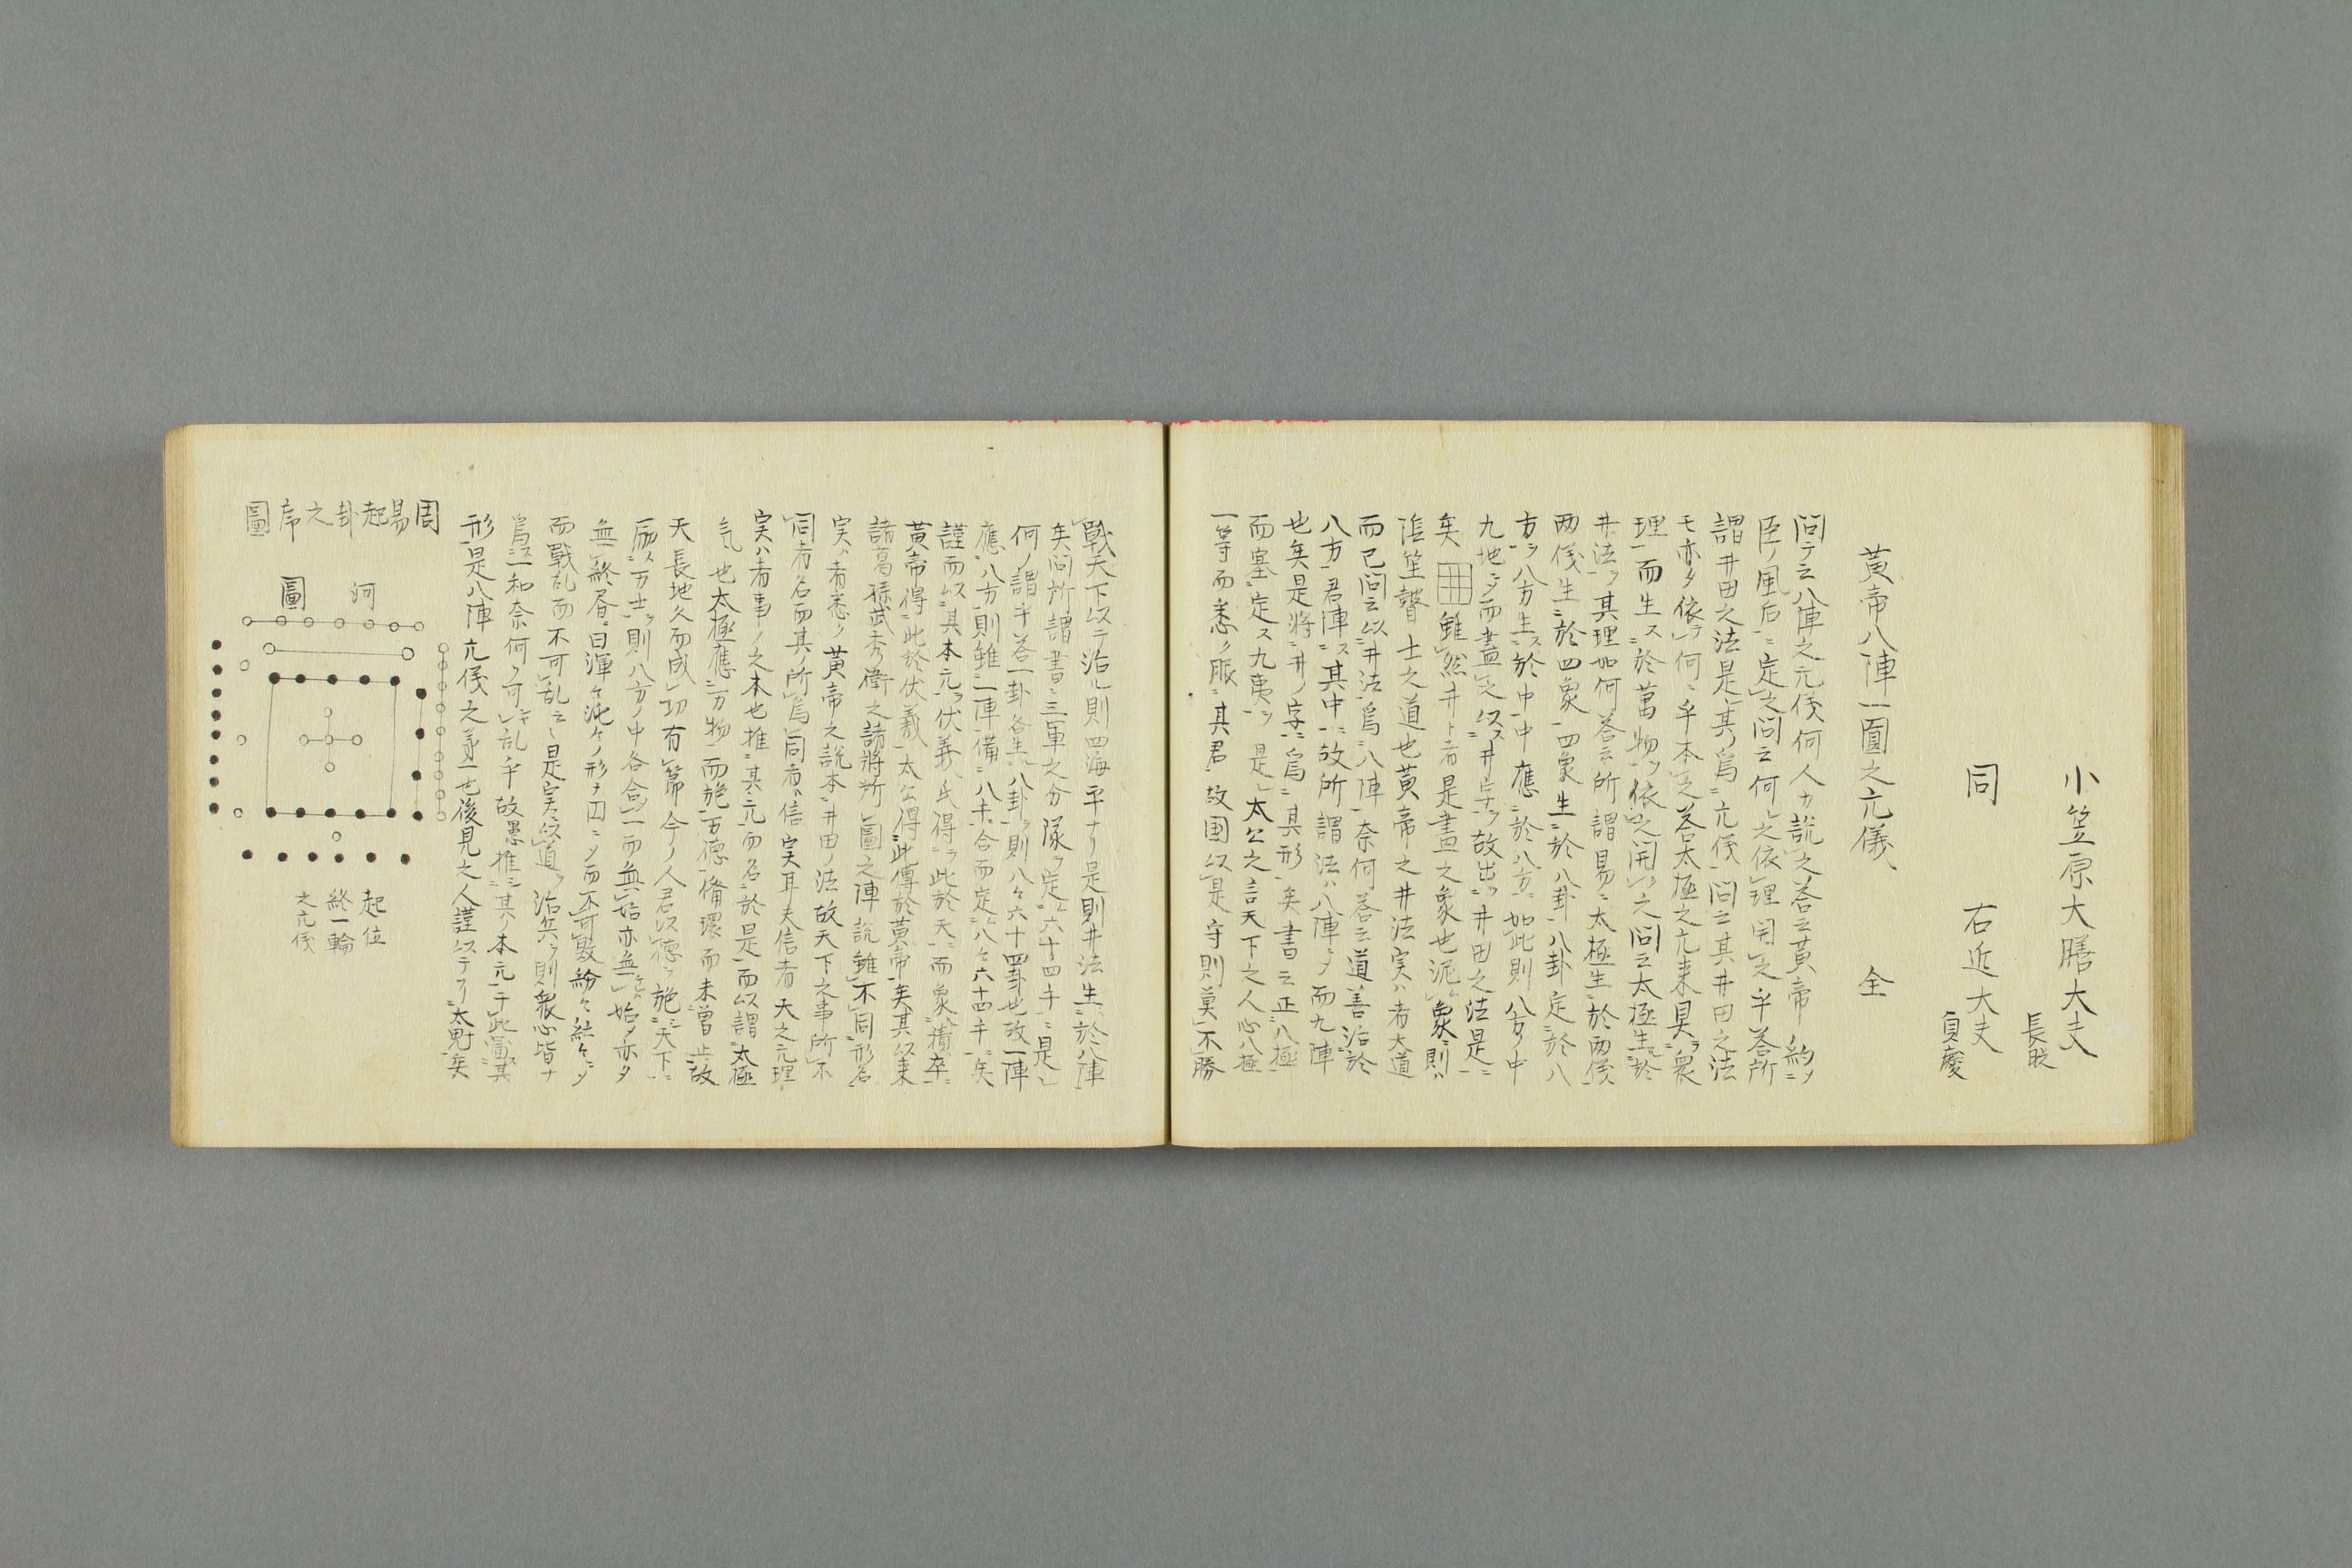 小笠原大膳大夫
長時
同　右近大夫
貞慶
黄帝八陣一圖之元儀　全
問テ云八陣之元儀何人カ説之答云黄帝約ノ
臣ノ風后ニ定之問云何之依理開之乎答所
謂井田之法是其ノ為元儀問云其井田之法
モ亦タ依テ何ニ乎本之答太極之元来具衆
理而生ス於萬物ヲ依之開ク之問云太極生於
井法ヲ其理如何答云所謂易ニ太極生ニ於両儀
両儀生ニ於四象一四象生ニ於八卦八卦定ニ於八
方ヲ八方生ス於中中應ニ於八方如此則八方ノ中
九地ニメ而盡之以井字ヲ故出ツ井田之法是ニ
矣　雖然井ト者是畫之象也泥象則
陰篁聲士之道也黄帝之井法実ハ者大道
而已問云以井法為八陣奈何答云道善治於
八方君陣ス其中ニ故所謂法ハ八陣ニメ而九陣
也矣是将ニ井ノ字為ニ其形矣書云正八極
而塞ニ定ス九夷ヲ是太公之言天下之人心八極
一等而悉ク服ニ其君故国以是守則莫不勝
戰天下以テ治ハ則四海平ナリ是則井法生ニ於八陣
矣問所謂書ニ三軍之分隊ヲ定ニ六十四手ニ是
何ノ謂乎答一卦各生八卦ヲ則八々六十四卦也故一陣
應八方則雖一陣備八未合而定八々六十四手ニ矣
謹而以ニ其本元ヲ伏義氏得テ此於天ニ而象積卒
黄帝得此於伏義太公得此傳於黄帝矣其以来
諸葛孫武秀衛之諸將所圖之陣説雖不同形名
実ハ者悉ク黄帝之説本ニ井田ノ法故天下之事所不
同者名而其ノ所為同者信実耳夫信者天之元理
実ハ者事ノ之本也推ニ其元而名於是而以謂太極
気也太極應ニ万物而施万徳備環而未曽止故
天長地久而成功有篇今ノ人君以徳ヲ施ニ天下ニ
励ス万士ヲ則八方ノ中各合一而無始亦無始メ亦タ
無終昏曰渾々沌々ノ形チ囚ニメ而不可敗紛々紜々ニメ
而戰乱而不可乱云々是実以道ヲ治兵ヲ則衆心皆ナ
為ニ一和奈何ク可キ乱乎故愚推ニ其ノ本元于此圖其
形是八陣元儀之義一也後見之人謹以テスニ太鬼矣
周易起卦之序圖
河圖
起位
終一輪
之元儀